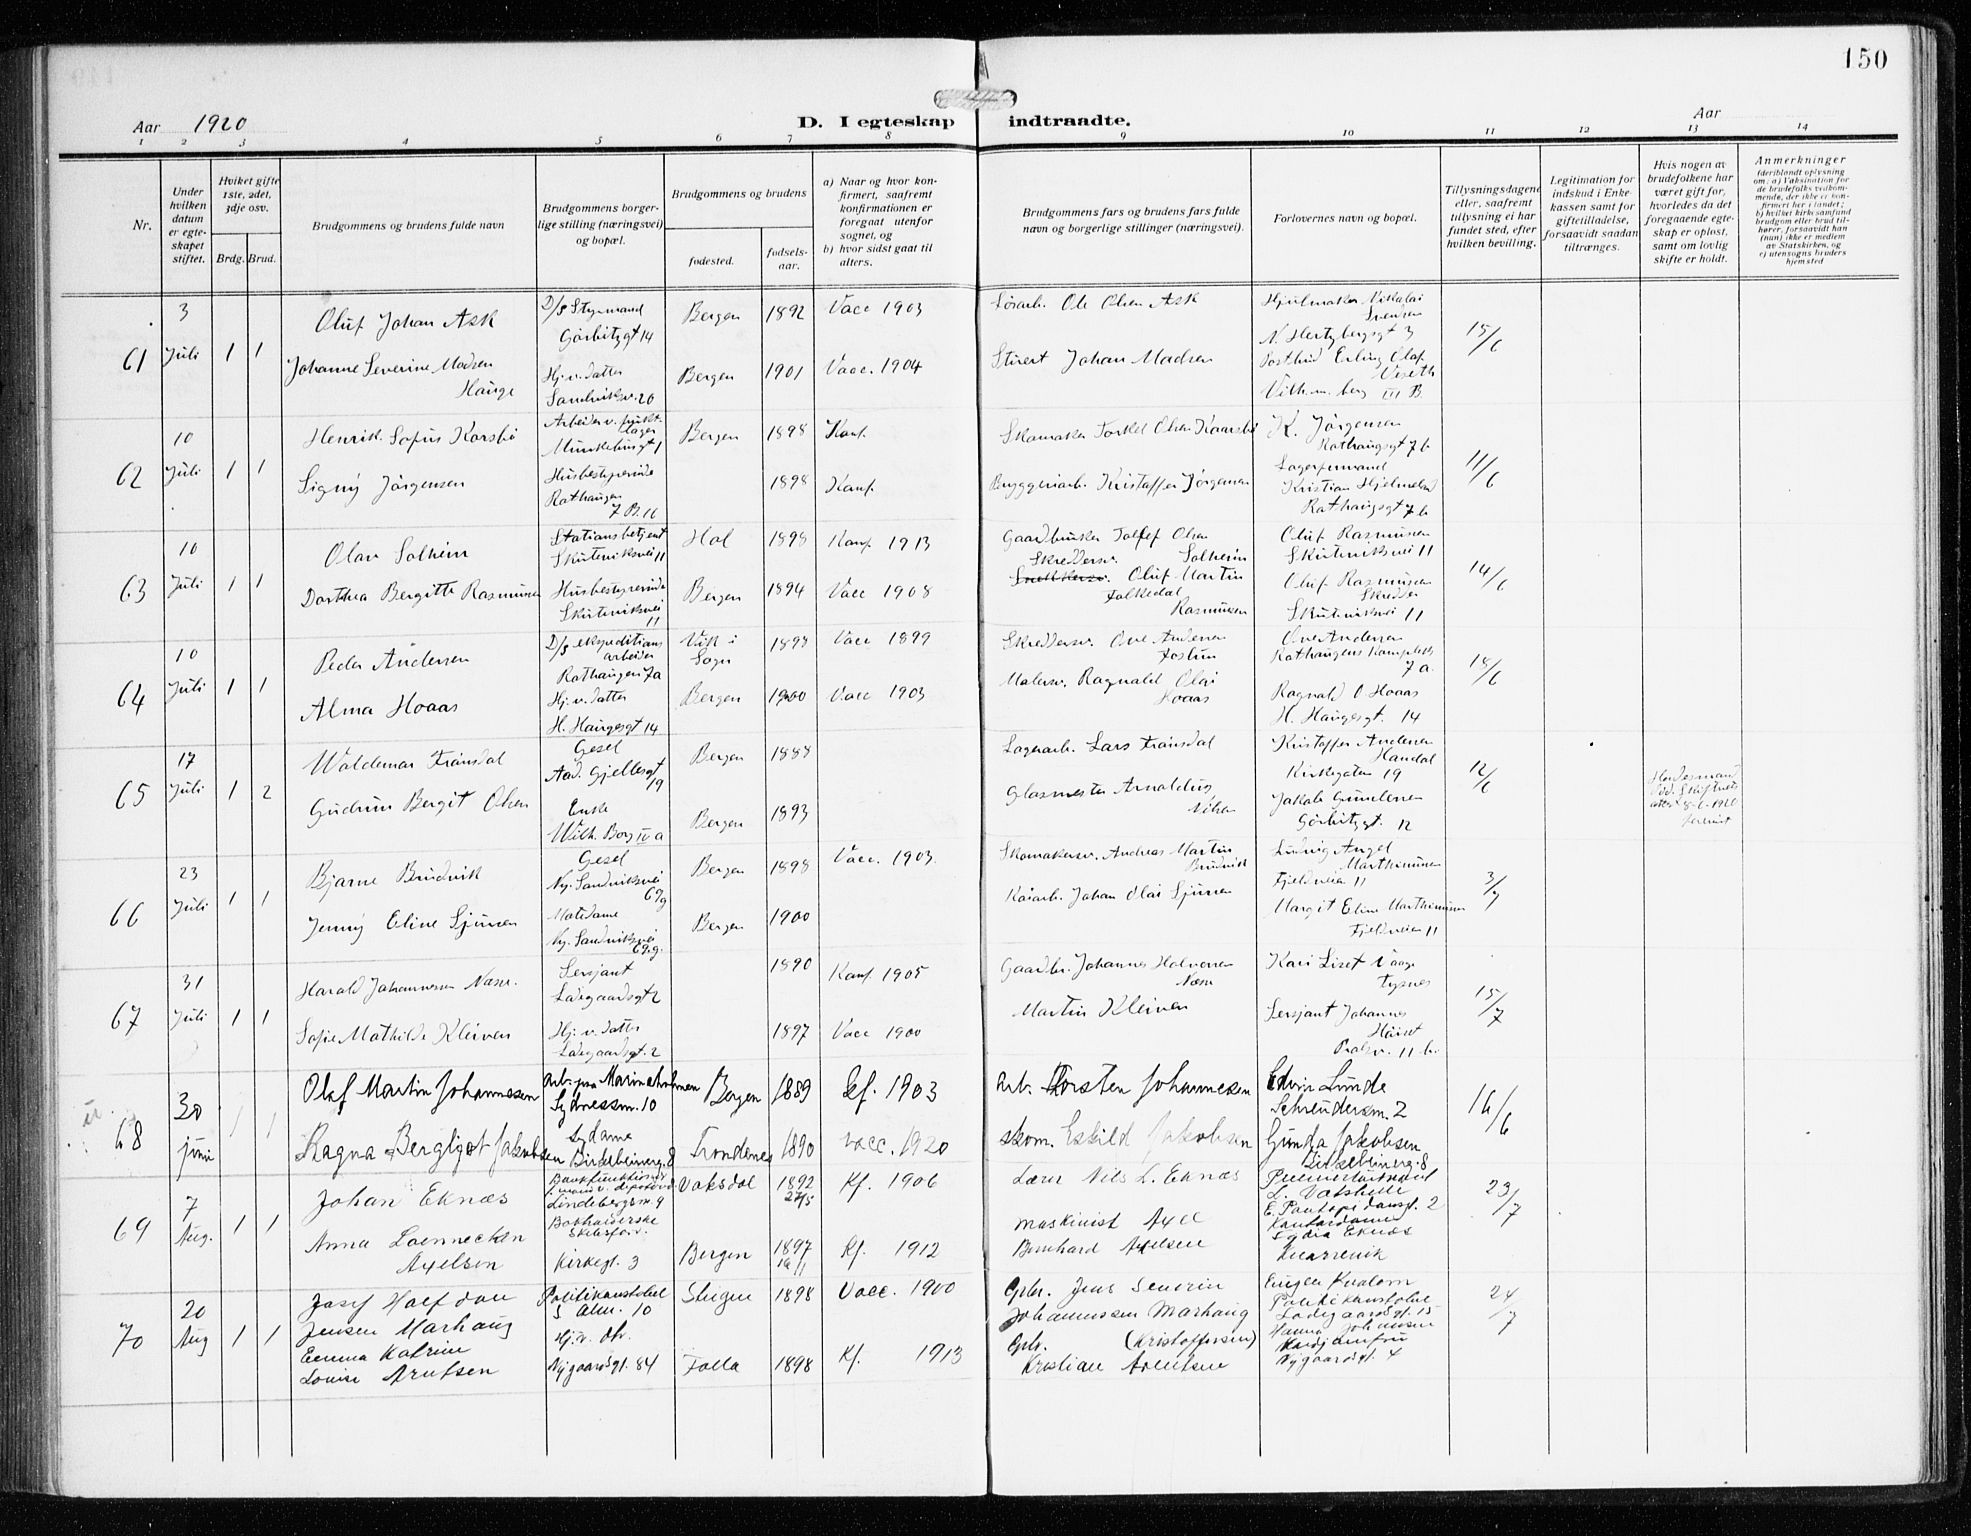 150
Aar 1920
D. I egteskap indtraadte.
Aar
1 2 3 4 5 6 7 8 9 10 11 12 13 14
Nr.
Under hvilken datum er egteskapet stiftet.
Hviket gifte 1ste, 2det, 3dje osv.
Brdg. Brud.
Brudgommens og brudens fulde navn
Brudgommens borgerlige stilling (næringsvei) og bopæl.
Brudgommens og brudens
fødested.
fødselsaar.
a) Naar og hvor konfirmert, saafremt konfirmationen er foregaat utenfor sognet, og
b) hvor sidst gaat til alters.
Brudgommens fars og brudens fars fulde navn og borgerlige stillinger (næringsvei).
Forlovernes navn og bopæl.
Tillysningsdagene eller, saafremt tillysning ei har fundet sted, efter hvilken bevilling.
Legitimation for indskud i Enkekassen samt for giftetilladelse, forsaavidt saadan tiltrænges.
Hvis nogen av brudefolkene har været gift før, hvorledes da det foregaaende egteskap er opløst, samt om lovlig skifte er holdt.
Anmerkninger
(deriblandt oplysning om: a) Vaksination for de brudefolks vedkommende, der ikke er konfirmert her i landet; b) hvilket kirkesamfund brudgom eller brud tilhører, forsaavidt han (hun) ikke er medlem av Statskirken, og c) utensogns bruders hjemsted
61
3 Juli
1 1
Oluf Johan Ask
D/S Styrmand
Görbitzgt 14
Bergen 1892 Vacc 1903
Ole Olsen Ask
Hjulmaker Nikolai Svensen
N. Hertzbergsgt 3
15/6
Johanne Severine Madsen Hauge
Hj. v. datter
Sandviksv. 20
Bergen 1901 Vacc. 1904
Stuert Johan Madsen
Postbud Erling Olaf
III B.
62
10 Juli
1 1
Henrik Sofus Korsbö
Munkebugt 1
Bergen 1898 Konf.
Skomaker Torkel Olsen Kaarsbö
K. Jörgensen
Rothaugsgt 7 b
11/6
Signy Jörgensen
Husbestyrerinde
Rothaugen
7 B. 16
1898 Konf.
Bryggeriarb. Kristoffer Jörgensen
Lagerformand
Kristian Hjelmeland
Rothaugsgt 7 b
63
10 Juli
1 1
Olav Solheim
Stationsbetjent
Skuteviksvei 11
Hol 1898 Konf. 1913
Gaardbruker Tollef Olsen Solheim
Oluf Rasmussen
Skuteviksvei 11
14/6
Dorthea Bergitte Rasmussen
Husbestyrerinde
Skuteviksvei 11
Bergen 1894 Vacc 1908
Skreddersv. Oluf Martin
Rasmussen
Oluf Rasmussen
Skredder
Skuteviksvei 11
64
10 Juli
1 1
Peder Andersen
D/S ekspeditions arbeider
Rothaugen 7a
Vik i Sogn
1898 Vacc 1899
Skreddersv. Ove Andersen
Ove Andersen
Rothaugens Kompleks 7 a.
18/6
Alma Hoaas
Hj. v. datter
H. Haugesgt 14
Bergen 1900 Vacc 1903
Malersv. Ragnald Olai Hoaas
Ragnald O Hoaas
H. Haugesgt. 14
65
17 Juli
1 2
Waldemar Fransdal
Gesel
Aad. Gjellesgt 19
Bergen 1888
Lagerarb. Lars Fransdal
Kristoffer Andersen Handal
Kirkegaten 19
12/6
Gudrun Bergit Olsen
Enke
Wilh. Borg IV a
Bergen 1893
Glasmester Arnoldus Nilsen
Jakob Gundersen
Görbitzgt. 12
8-6-1920
66
23 Juli
1 1
Bjarne Brudvik
Gesel
Ny. Sandviksvei 69g
Bergen 1898 Vacc. 1903.
Skomakersv. Andreas Martin Brudvik
Ludvig Angel Marthinussen
Fjeldveien 11
3/7
Jenny Eline Sjursen
Motedame
Ny. Sandviksvei 69g.
Bergen 1900
Kaiarb. Johan Olai Sjursen
Margit Eline Marthinussen
Fjeldveien 11
67
31 Juli
1 1
Harald Johannesen Næse.
Sersjant
Ladegaardsgt 2
1890 Konf. 1905
Gaardbr. Johannes Halvorsen Næse
Kari Liset Vaage
Tysnes
15/7
Sofie Mathilde Kleiven
Hj. v. datter
Ladegaardsgt. 2
1897 Vacc 1900
Martin Kleiven
Sersjant Johannes
68
30 juni
1 1
Olaf Martin Johannessen
Arb. paa Marineholmen
Sydnessm. 10
Bergen 1889 kf. 1903
Arb. Torsten Johannesen
Edvin Lunde
Schreudersm. 2
16/6
Ragna Bergliot Jakobsen
Sydame
Birkebeinerg. 8
Trondenes 1890 vacc. 1920
skom. Eskild Jakobsen
Gunda Jakobsen
Birkebeinerg. 8
69
7 Aug.
1 1
Johan Eknæs
Lindebergsm. 9
Vaksdal 1892 27/5 Kf. 1906
Lærer Nils L. Eknæs
Premierløitnant
L. Vatshelle
23/7
Anna Loennecken Axelsen
Bokholderske
Kirkegt. 3
Bergen 1897 19/1 Kf. 1912
maskinist Axel Bernhard Axelsen
Kontordame
Lydia Eknæs
70
20 Aug
1 1
Josef Halfdan Jensen Marhaug
Politikonstabel
S. Alm. 10
Steigen 1898 Vacc. 1900
Gbr. Jens Severin Johannessen Marhaug
Eugen Kvalem
Politikonstabel
Ladegaardsgt. 15
24/7
Emma Katrine Lovise Arntsen
Hj. v. dtr.
Nygaardsgt. 84
Folla 1898 Kf. 1913
Gbr. (Kristoffersen) Kristian Arntsen
Hanna Johansen
Nygaardsgt. 4